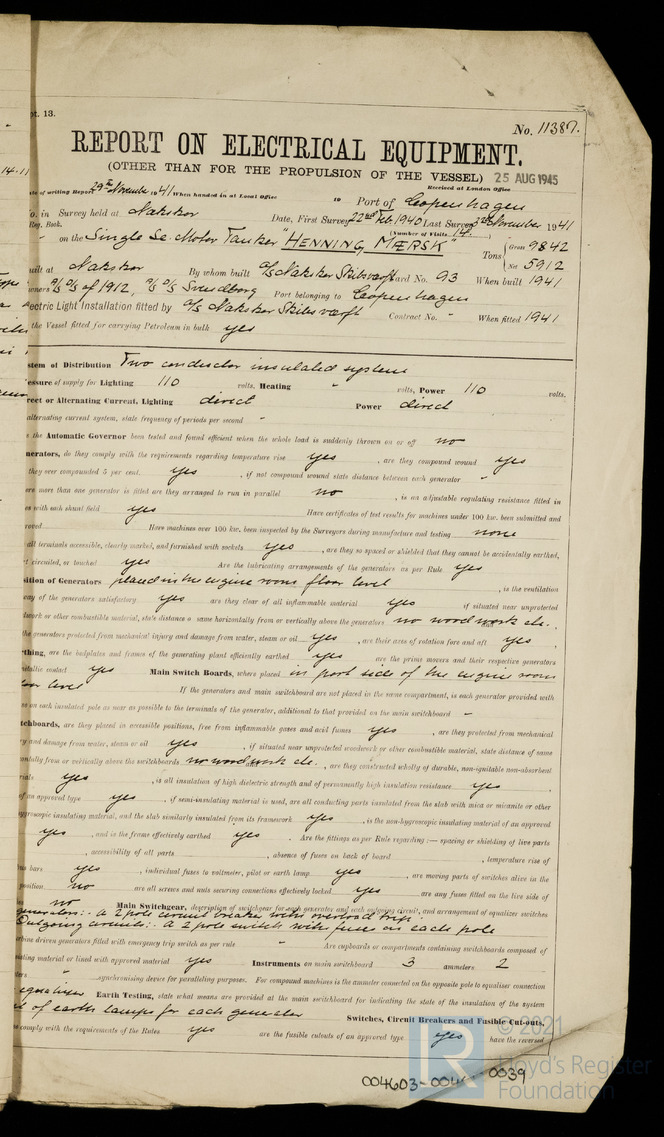 pt. 13.
No. 11387.
REPORT ON ELECTRICAL EQUIPMENT.
(OTHER THAN FOR THE PROPULSION OF THE VESSEL) 25 AUG 1945
ate of writing Report 29th November 1941 When handed in at Local Office 10 Port of Copenhagen Received at London Office
o. in Survey held at Nakskov Date, First Survey 22nd Feb. 1940 Last Survey November 1941
Reg. Book. (Number of Visits 14.)
on the Single Sc. Motor Tanker "HENNING MÆRSK" Tons Gross 9842
Net 5912
uilt at Nakskov By whom built A/S Nakskov Skibsværft Yard No. 93 When built 1941
wners A/S D/S of 1912, A/S D/S Svendborg Port belonging to Copenhagen
lectric Light Installation fitted by A/S Nakskov Skibsværft Contract No. - When fitted 1941
the Vessel fitted for carrying Petroleum in bulk yes
stem of Distribution Two conductor insulated system
essure of supply for Lighting 110 volts, Heating - volts, Power 110 volts.
rect or Alternating Current, Lighting direct Power direct
alternating current system, state frequency of periods per second -
s the Automatic Governor been tested and found efficient when the whole load is suddenly thrown on or off no
nerators, do they comply with the requirements regarding temperature rise yes , are they compound wound yes
they over compounded 5 per cent. yes , if not compound wound state distance between each generator -
ere more than one generator is fitted are they arranged to run in parallel no , is an adjustable regulating resistance fitted in
es with each shunt field yes Have certificates of test results for machines under 100 kw. been submitted and
roved Have machines over 100 kw. been inspected by the Surveyors during manufacture and testing none
all terminals accessible, clearly marked, and furnished with sockets yes , are they so spaced or shielded that they cannot be accidentally earthed,
t circuited, or touched yes Are the lubricating arrangements of the generators as per Rule yes
sition of Generators placed in the engine room floor level , is the ventilation
way of the generators satisfactory yes are they clear of all inflammable material yes if situated near unprotected
dwork or other combustible material, state distance o same horizontally from or vertically above the generators no wood work etc.
the generators protected from mechanical injury and damage from water, steam or oil yes , are their axes of rotation fore and aft yes
rthing, are the bedplates and frames of the generating plant efficiently earthed yes are the prime movers and their respective generators
etallic contact yes Main Switch Boards, where placed in port side of the engine room
loor level If the generators and main switchboard are not placed in the same compartment, is each generator provided with
se on each insulated pole as near as possible to the terminals of the generator, additional to that provided on the main switchboard -
tchboards, are they placed in accessible positions, free from inflammable gases and acid fumes yes , are they protected from mechanical
ry and damage from water, steam or oil yes , if situated near unprotected woodwork or other combustible material, state distance of same
ontally from or vertically above the switchboards no wood work etc. , are they constructed wholly of durable, non-ignitable non-absorbent
rials yes , is all insulation of high dielectric strength and of permanently high insulation resistance yes
of an approved type yes , if semi-insulating material is used, are all conducting parts insulated from the slab with mica or micanite or other
ygroscopic insulating material, and the slab similarly insulated from its framework yes , is the non-hygroscopic insulating material of an approved
yes , and is the frame effectively earthed yes . Are the fittings as per Rule regarding :— spacing or shielding of live parts
, accessibility of all parts , absence of fuses on back of board , temperature rise of
us bars yes , individual fuses to voltmeter, pilot or earth lamp yes , are moving parts of switches alive in the
position no are all screws and nuts securing connections effectively locked yes are any fuses fitted on the live side of
es no Main Switchgear, description of switchgear for each generator and each outgoing circuit, and arrangement of equalizer switches
generators:- A 2 pole circuit breaker with overload trip.
Outgoing circuits:- A 2 pole switch with fuses on each pole
urbine driven generators fitted with emergency trip switch as per rule - Are cupboards or compartments containing switchboards composed of
sisting material or lined with approved material yes Instruments on main switchboard 3 ammeters 2
ters - synchronising device for paralleling purposes. For compound machines is the ammeter connected on the opposite pole to equaliser connection
equaliser Earth Testing, state what means are provided at the main switchboard for indicating the state of the insulation of the system
of earth lamps for each generator Switches, Circuit Breakers and Fusible Cut-outs,
comply with the requirements of the Rules yes are the fusible cutouts of an approved type yes have the reversed
© 2021
Lloyd's Register
Foundation